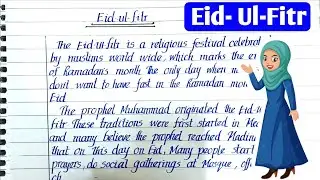 Eid-ul-fitr
Eid- Ul-Fitr
The Eid-ul-fitr is a religious festival celebrat
by muslims world wide, which marks the en
of Ramadan's month the only day when m
don't want to have fast in the ramadan mon
Eid
The prophet Muhammad originated the Eid-u
fitr These traditions were fast started in Me
and many believe the prophet reached Madina
that on this day on Eid, Many people start
prayers, do social gatherings at Mosque, off